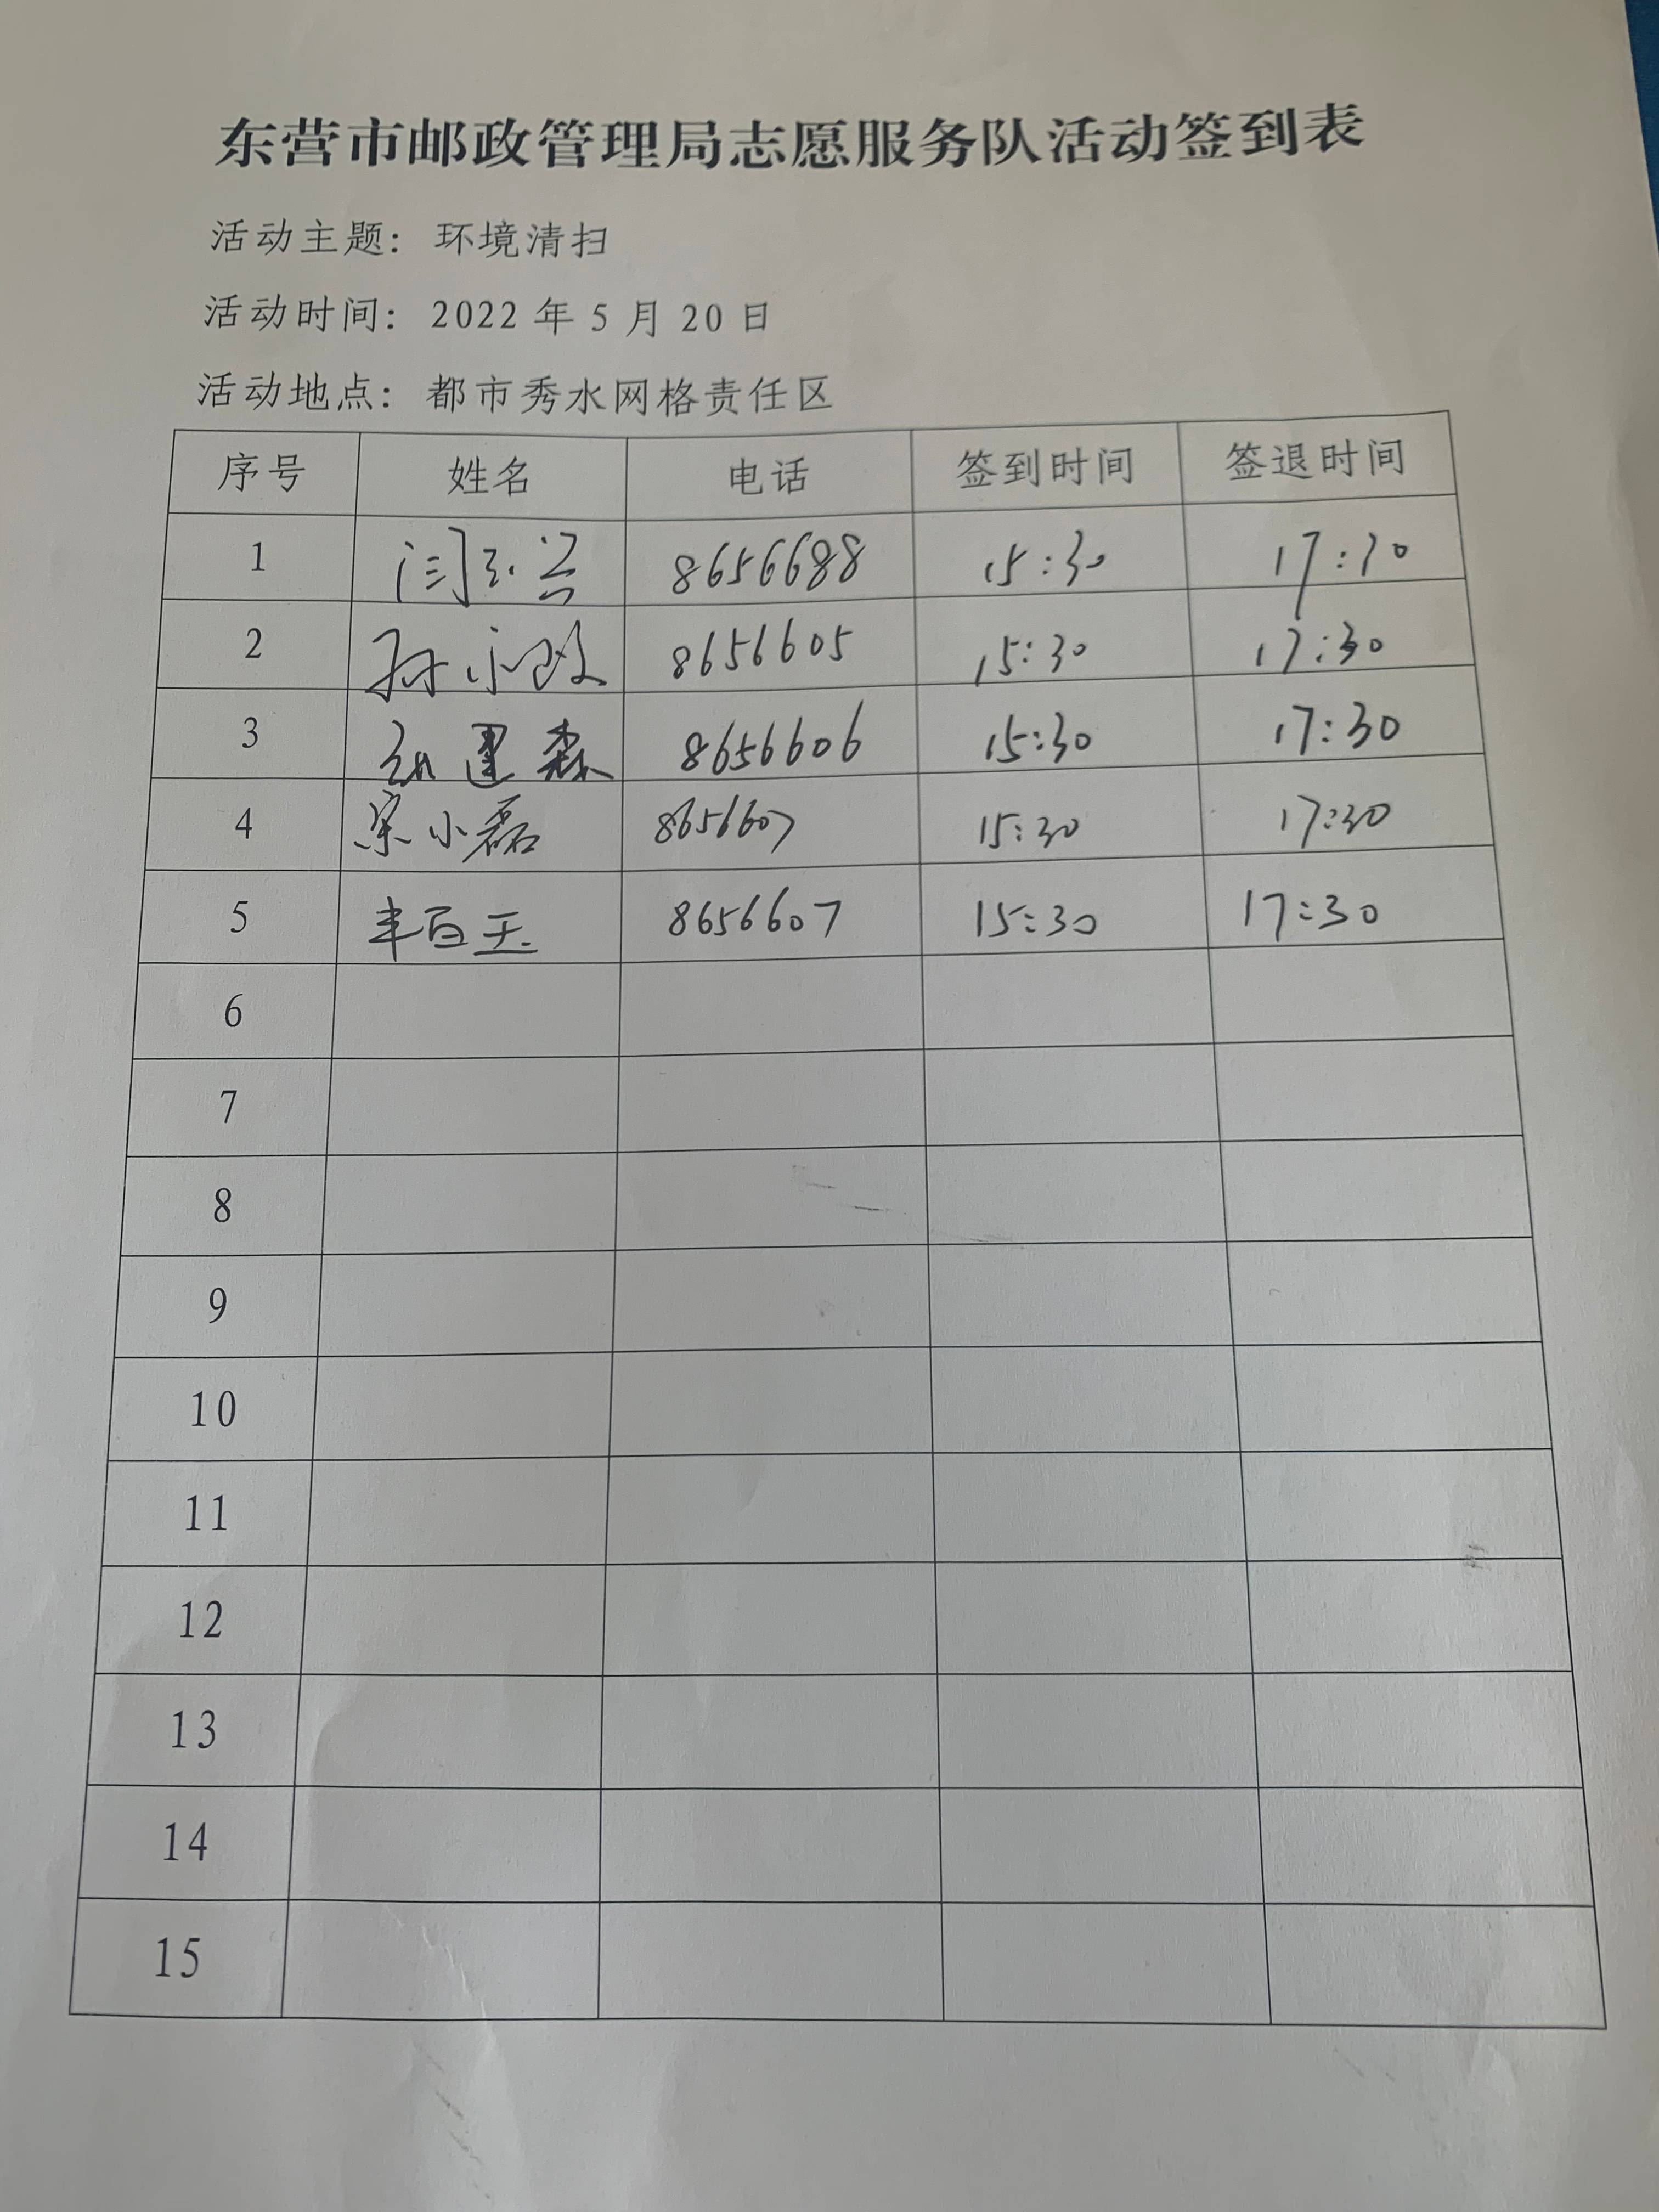 东营市邮政管理局志愿服务队活动签到表
活动主题：环境清扫
活动时间：2022年5月20日
活动地点：都市秀水网格责任区
序号 姓名 电话 签到时间 签退时间
1 8656688 15:30 17:30
2 孙小 8656605 15:30 17:30
3 建森 8656606 15:30 17:30
4 宋小磊 8656607 15:30 17:30
5 丰百玉 8656607 15:30 17:30
6
7
8
9
10
11
12
13
14
15